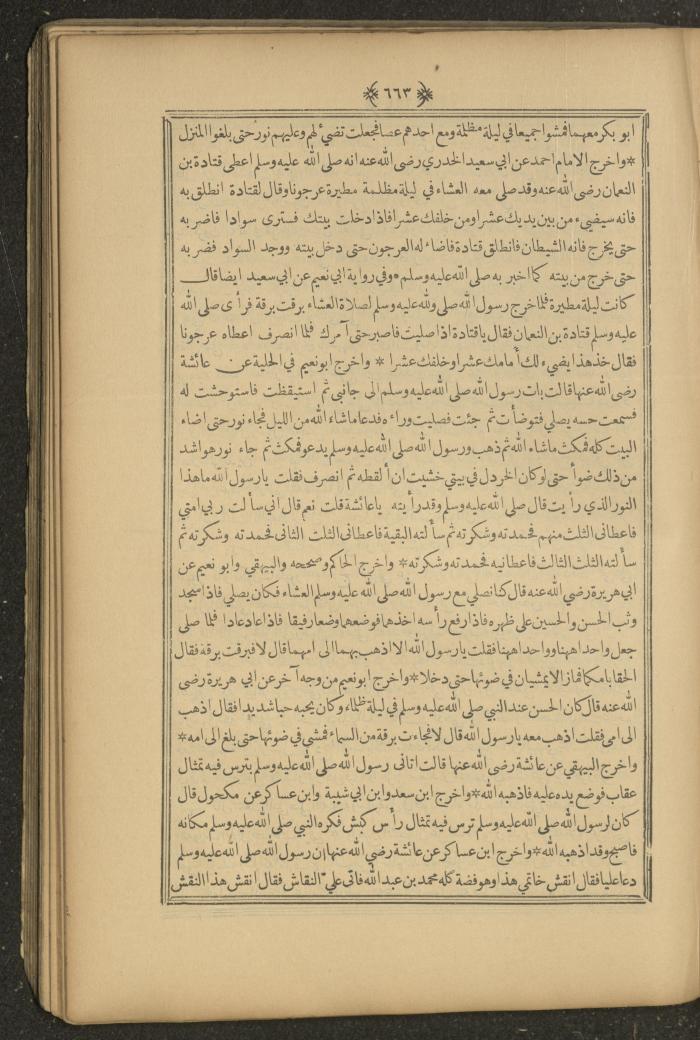 ﴿ ٦٦٣ ﴾
ابو بكر معهما فمشوا جميعا في ليلة مظلمة ومع احدهم عصا فجعلت تضيء لهم وعليهم نور حتى بلغوا المنزل
*واخرج الامام احمد عن ابي سعيد الخدري رضى الله عنه انه صلى الله عليه وسلم اعطى قتادة بن
النعمان رضى الله عنه وقد صلى معه العشاء في ليلة مظلمة مطيرة عرجونا وقال لقتادة انطلق به
فانه سيضيء من بين يديك عشرا ومن خلفك عشرا فاذا دخلت بيتك فسترى سوادا فاضر به
حتى يخرج فانه الشيطان فانطلق قتادة فاضاء له العرجون حتى دخل بيته ووجد السواد فضر به
حتى خرج من بيته كما اخبر به صلى الله عليه وسلم *وفي رواية ابي نعيم عن ابي سعيد ايضا قال
كانت ليلة مطيرة فلما خرج رسول الله صلى ولله عليه وسلم لصلاة العشاء برقت برقة فرأى صلى الله
عليه وسلم قتادة بن النعمان فقال ياقتادة اذا صليت فاصبر حتى آمرك فلما انصرف اعطاه عرجونا
فقال خذ هذا يضيء لك أمامك عشرا وخلفك عشرا * واخرج ابو نعيم في الحلية عن عائشة
رضى الله عنها قالت بات رسول الله صلى الله عليه وسلم الى جانبي ثم استيقظت فاستوحشت له
فسمعت حسه يصلي فتوضأت ثم جئت فصليت وراءه فدعا ماشاء الله من الليل فجاء نور حتى اضاء
البيت كله فمكث ماشاء الله ثم ذهب ورسول الله صلى الله عليه وسلم يدعو فمكث ثم جاء نور هو اشد
من ذلك ضوأ حتى لو كان الخردل في بيتي خشيت ان ألقطه ثم انصرف فقلت يارسول الله ماهذا
النور الذي رأيت قال صلى الله عليه وسلم وقد رأيته ياعائشة قلت نعم قال اني سألت ربي امتي
فاعطانى الثلث منهم فحمدته وشكرته ثم سألته البقية فاعطانى الثلث الثانى فحمدته وشكرته ثم
سألته الثلث الثالث فاعطانيه فحمدته وشكرته* واخرج الحاكم وصححه والبيهقي وابو نعيم عن
ابي هريرة رضي الله عنه قال كنا نصلي مع رسول الله صلى الله عليه وسلم العشاء فكان يصلي فاذا سجد
وثب الحسن والحسين على ظهره فاذا رفع رأسه اخذهما فوضعهما وضعا رفيقا فاذا عاد عادا فلما صلى
جعل واحدا ههنا وواحدا ههنا فقلت يارسول الله الا اذهب بهما الى امهما قال لا فبرقت برقة فقال
الحقا بامكما فما زالا يمشيان في ضوئها حتى دخلا*واخرج ابو نعيم من وجه آخر عن ابي هريرة رضى
الله عنه قال كان الحسن عند النبي صلى الله عليه وسلم في ليلة ظلماء وكان يحبه حبا شديدا فقال اذهب
الى امى فقلت اذهب معه يارسول الله قال لا فجاءت برقة من السماء فمشى في ضوئها حتى بلغ الى امه*
واخرج البيهقي عن عائشة رضى الله عنها قالت اتانى رسول الله صلى الله عليه وسلم بترس فيه تمثال
عقاب فوضع يده عليه فاذهبه الله*واخرج ابن سعد وابن ابي شيبة وابن عساكر عن مكحول قال
كان لرسول الله صلى الله عليه وسلم ترس فيه تمثال رأس كبش فكره النبي صلى الله عليه وسلم مكانه
فاصبح وقد اذهبه الله*واخرج ابن عساكر عن عائشة رضي الله عنها ان رسول الله صلى الله عليه وسلم
دعا عليا فقال انقش خاتمي هذا وهو فضة كله محمد بن عبد الله فاتى عليّ النقاش فقال انقش هذا النقش